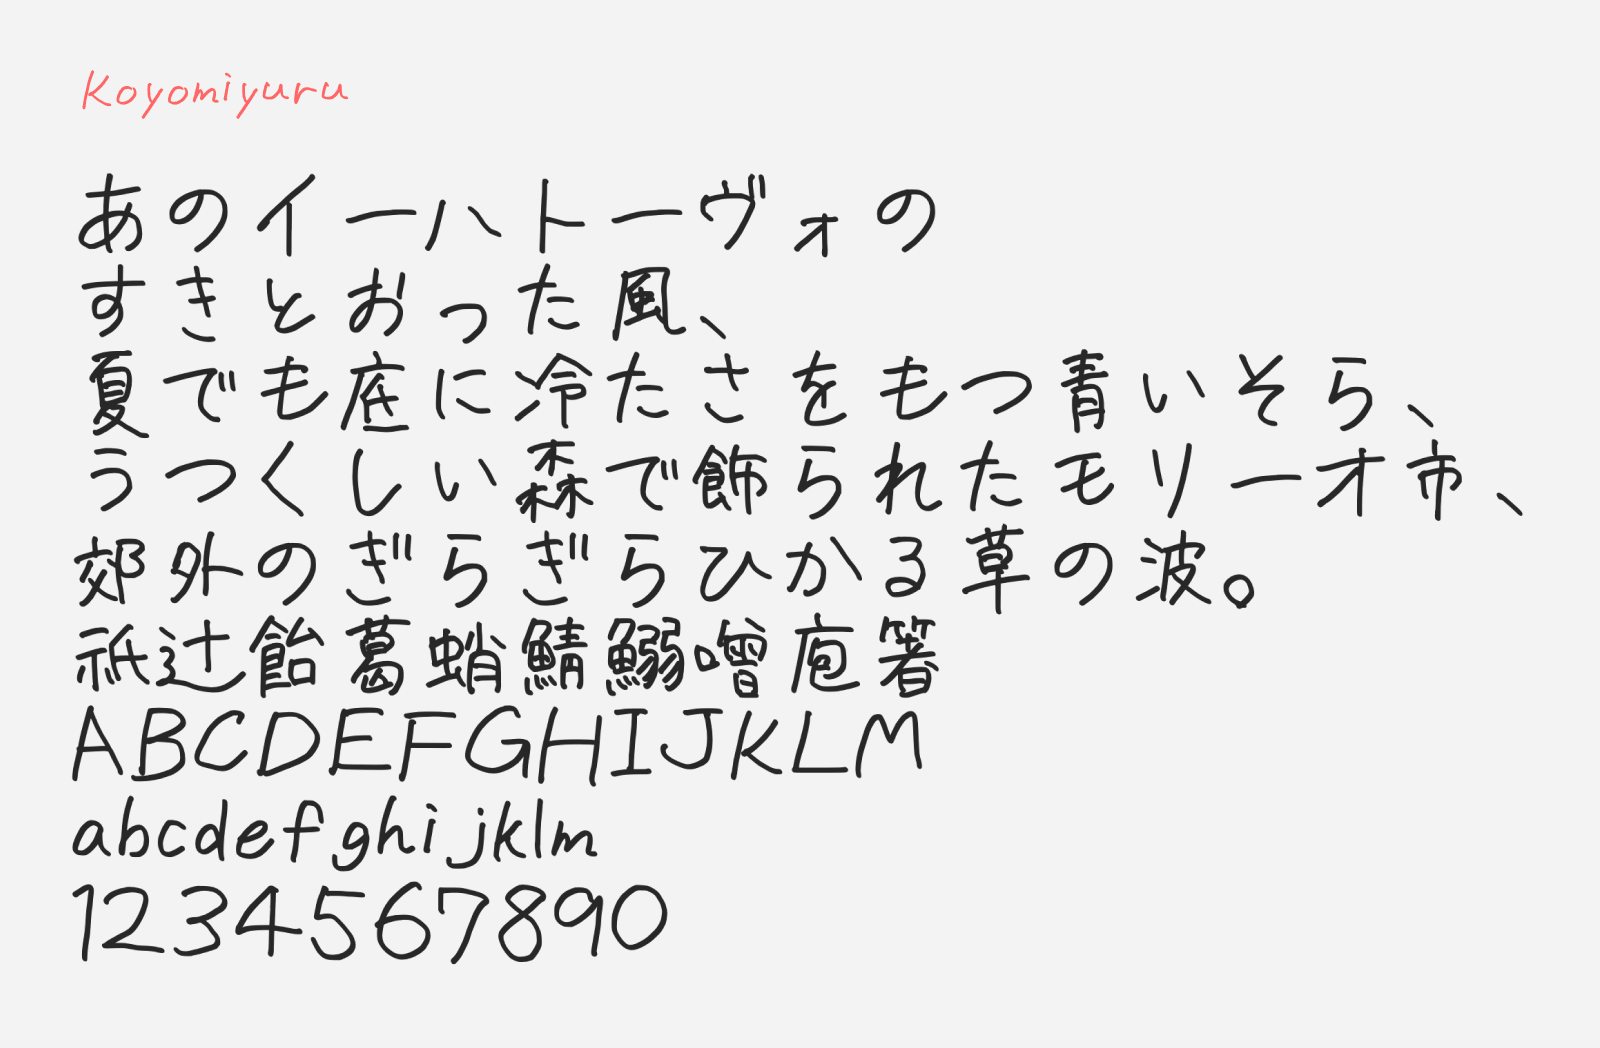 Koyomiyuru
あのイーハトーヴォの
すきとおった風、
夏でも底に冷たさをもつ青いそら、
うつくしい森で飾られたモリーオ市、
郊外のぎらぎらひかる草の波。
祇辻飴葛蛸鯖鰯噌庖箸
ABCDEFGHIJKLM
abcdefghijklm
1234567890